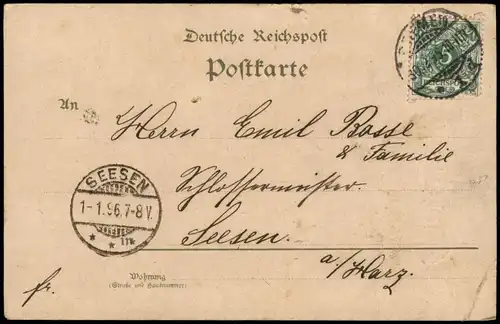 Deutsche Reichspost
Postkarte
BREMEN
5
An
Herrn Emil Bosse
& Familie
Schlossermeister.
Seesen.
a/Harz.
SEESEN
1-1.96.7-8V.
* * m
fr.
Wohnung
(Straße und Hausnummer)